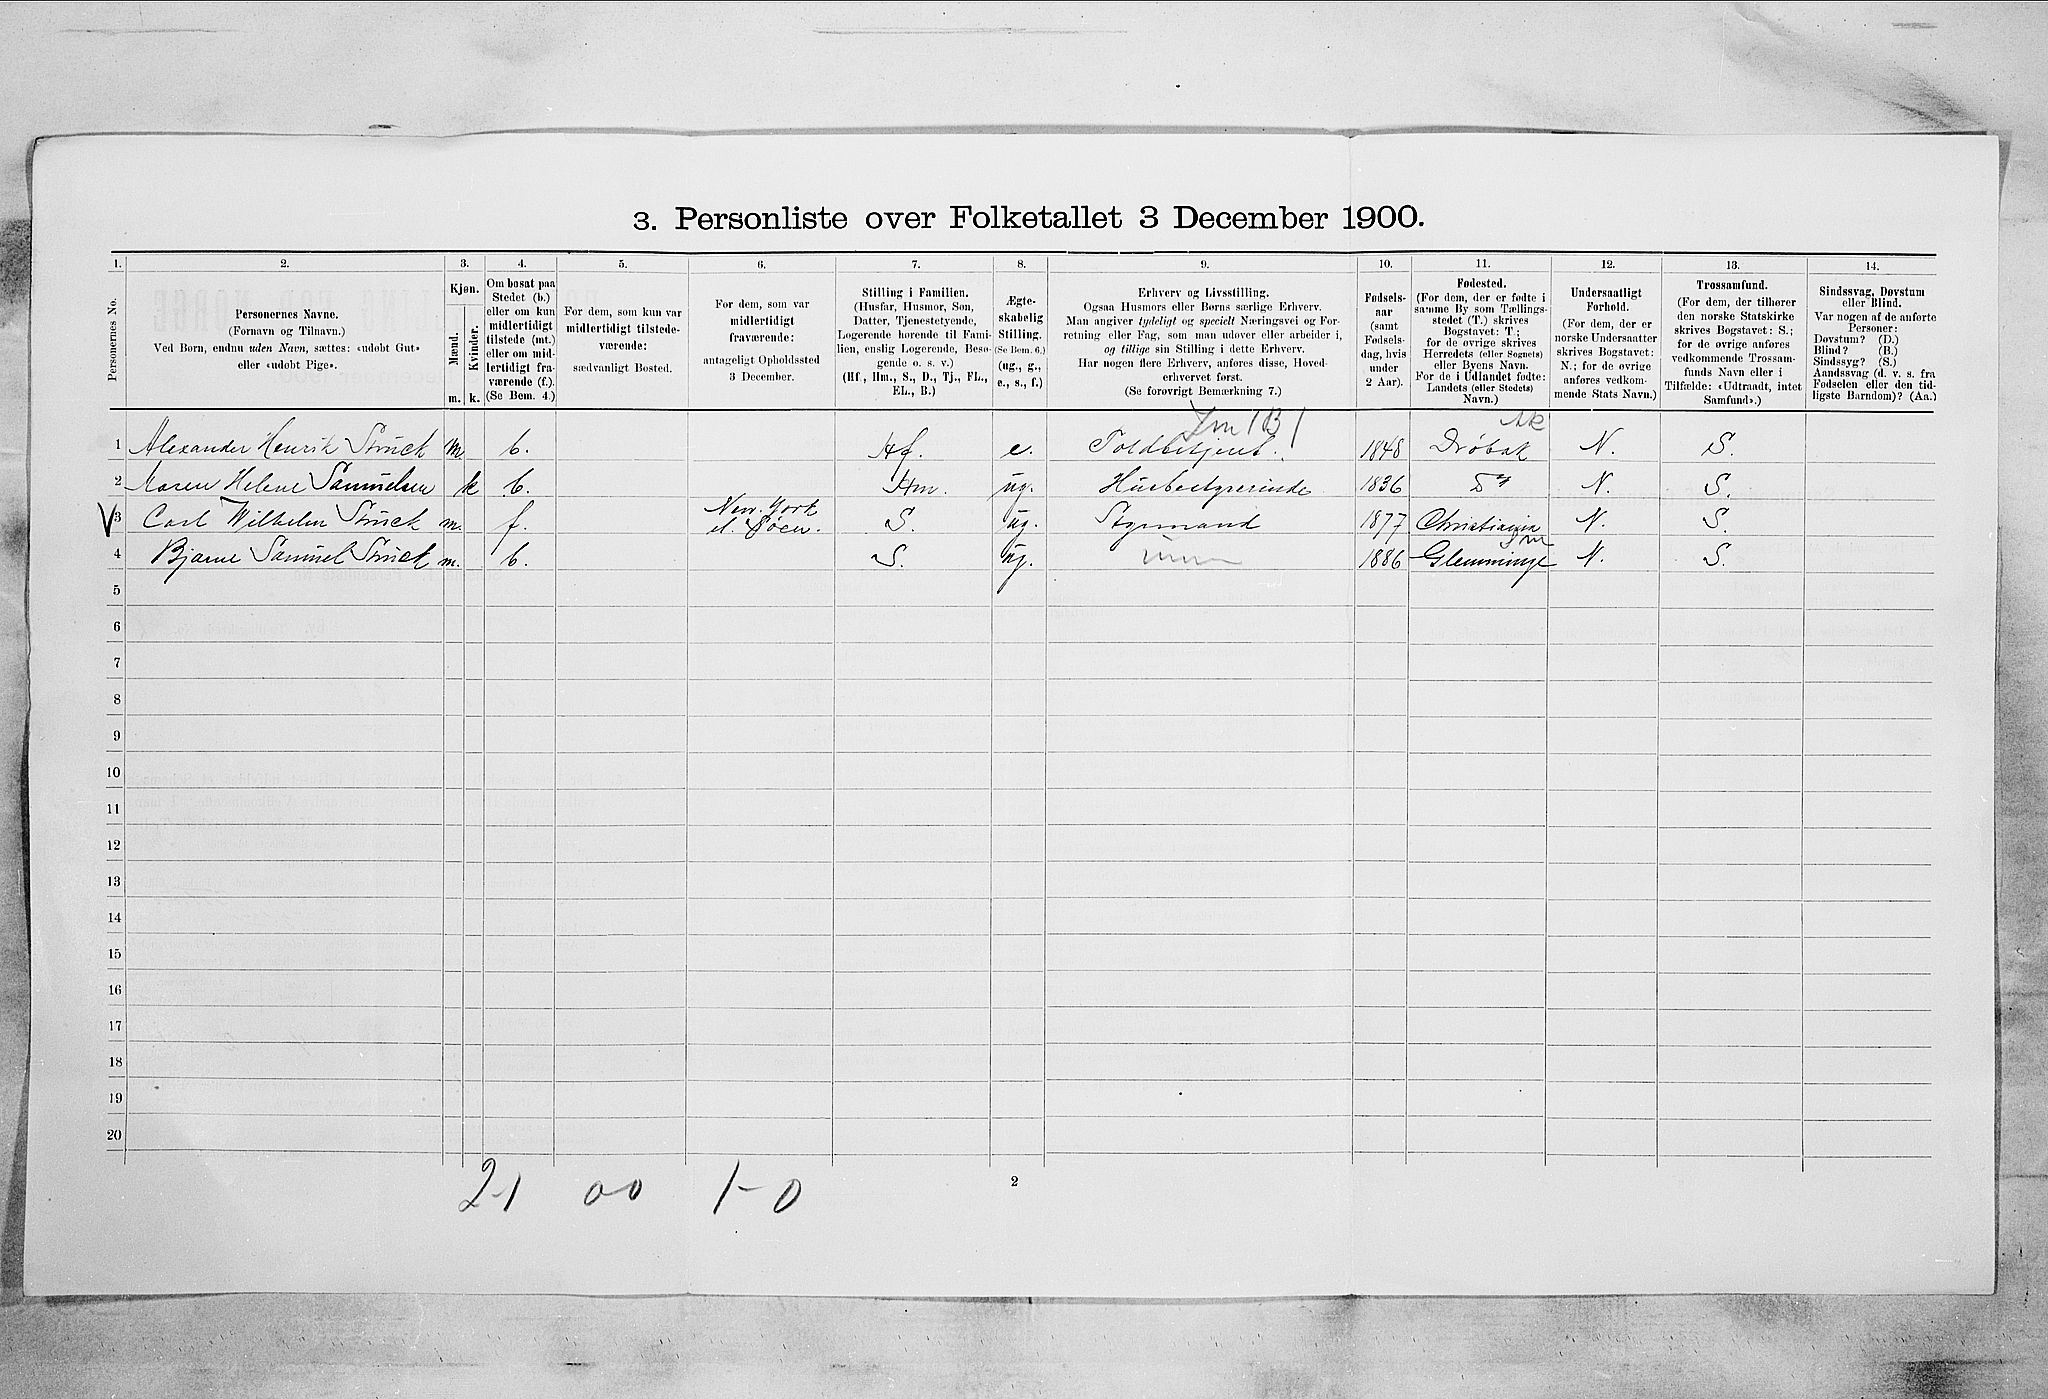 3. Personliste over Folketallet 3 December 1900.
1. 2. 3. 4. 5. 6. 7. 8. 9. 10. 11. 12. 13. 14.
Personernes No.
Personernes Navne.
(Fornavn og Tilnavn.)
Ved Børn, endnu uden Navn, sættes: «udøbt Gut»
eller «udøbt Pige».
Kjøn.
Mænd.
Kvinder.
m. k.
Om bosat paa
Stedet (b.)
eller om kun
midlertidigt
tilstede (mt.)
eller om mid-
lertidigt fra-
værende (f.).
(Se Bem. 4.)
For dem, som kun var
midlertidigt tilstede-
værende:
sædvanligt Bosted.
For dem, som var
midlertidigt
fraværende:
antageligt Opholdssted
3 December.
Stilling i Familien.
(Husfar, Husmor, Søn,
Datter, Tjenestetyende,
Logerende hørende til Fami-
lien, enslig Logerende, Besø-
gende o. s. v.)
(Hf., Hm., S., D., Tj., FL.,
EL., B.)
Ægte-
skabelig
Stilling.
(Se Bem. 6.)
(ug., g.,
e., s., f.)
Erhverv og Livsstilling.
Ogsaa Husmors eller Børns særlige Erhverv.
Man angiver tydeligt og specielt Næringsvei og For-
retning eller Fag, som man udøver eller arbeider i,
og tillige sin Stilling i dette Erhverv.
Har nogen flere Erhverv, anføres disse, Hoved-
erhvervet først.
(Se forøvrigt Bemærkning 7.)
Fødsels-
aar
(samt
Fødsels-
dag, hvis
under
2 Aar).
Fødested.
(For dem, der er fødte i
samme By som Tællings-
stedet (T.) skrives
Bogstavet: T.;
for de øvrige skrives
Herredets (eller Sognets)
eller Byens Navn.
For de i Udlandet fødte:
Landets (eller Stedets)
Navn.)
Undersaatligt
Forhold.
(For dem, der er
norske Undersaatter
skrives Bogstavet:
N.; for de øvrige
anføres vedkom-
mende Stats Navn.)
Trossamfund.
(For dem, der tilhører
den norske Statskirke
skrives Bogstavet: S.;
for de øvrige anføres
vedkommende Trossam-
funds Navn eller i
Tilfælde: «Udtraadt, intet
Samfund».)
Sindssvag, Døvstum
eller Blind.
Var nogen af de anførte
Personer:
Døvstum? (D.)
Blind? (B.)
Sindssyg? (S.)
Aandssvag (d. v. s. fra
Fødselen eller den tid-
ligste Barndom)? (Aa.)
Ak
1 Alexander Henrik Struck m. b. Hf. e. Toldbetjent. 1848 Drøbak N. S.
2 Maren Helene Samuelsen k b. Hm. ug. Husbestyrerinde 1836 Do N. S.
3 Carl Wilhelm Struck m. f. New. York el. Søen. S. ug. Styrmand 1877 Christiania N. S.
4 Bjarne Samuel Struck m. b. S. ug. 1886 Glemminge N. S.
5
6
7
8
9
10
11
12
13
14
15
16
17
18
19
20
2-1 00 1-0
2